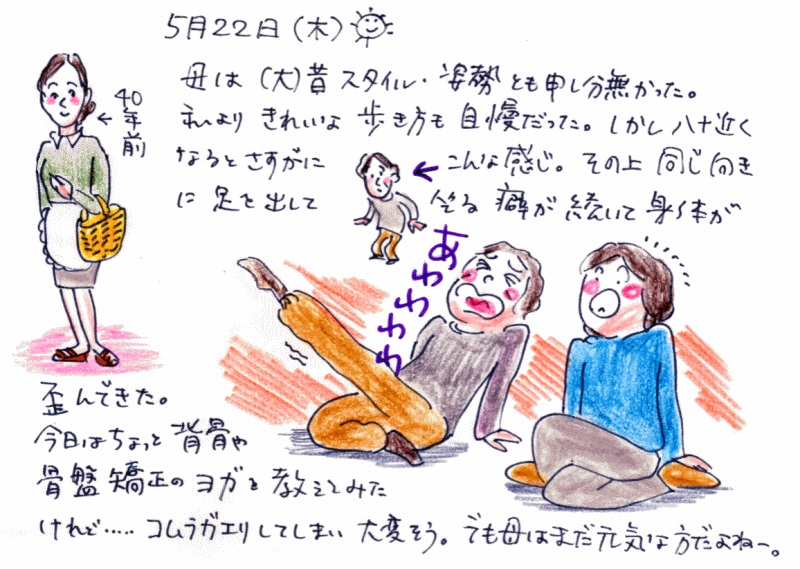 5月22日(木)
母は(大)昔スタイル・姿勢とも申し分無かった。
私よりきれいな歩き方も自慢だった。しかし八十近く
なるとさすがに ← こんな感じ。その上同じ向き
に足を出して 坐る癖が続いて身体が
歪んできた。
今日はちょっと背骨や
骨盤矯正のヨガを教えてみた
けれど‥‥‥コムラガエリしてしまい大変そう。でも母はまだ元気な方だよねー。
←40年前
あわわわわ